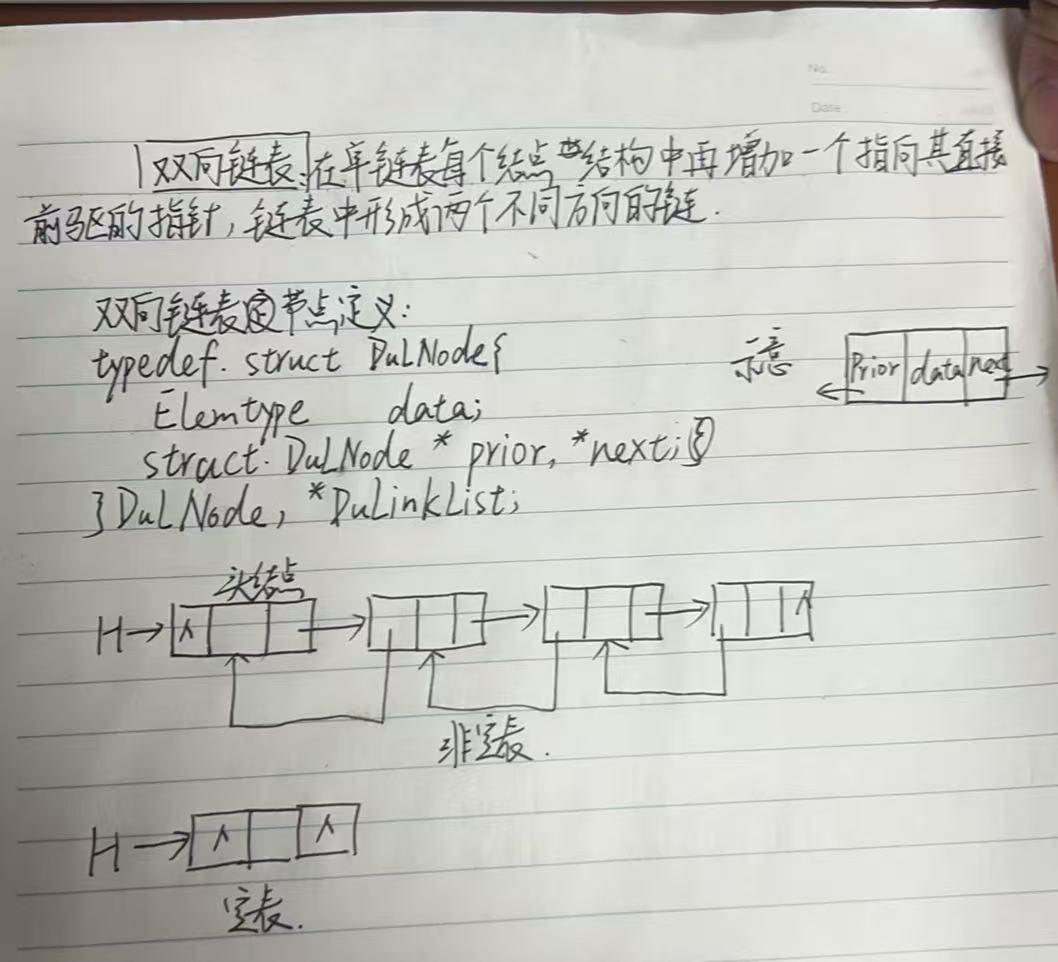 No.
Date
双向链表:在单链表每个结点结构中再增加一个指向其直接
前驱的指针,链表中形成两个不同方向的链.
双向链表节点定义:
typedef. struct DuLNode{
示意
Prior data next
Elemtype data;
struct. DuLNode * prior, *next;
}DuLNode, *DuLinkList;
头结点
H→ ∧ ∧
非空表.
H→ ∧ ∧
空表.